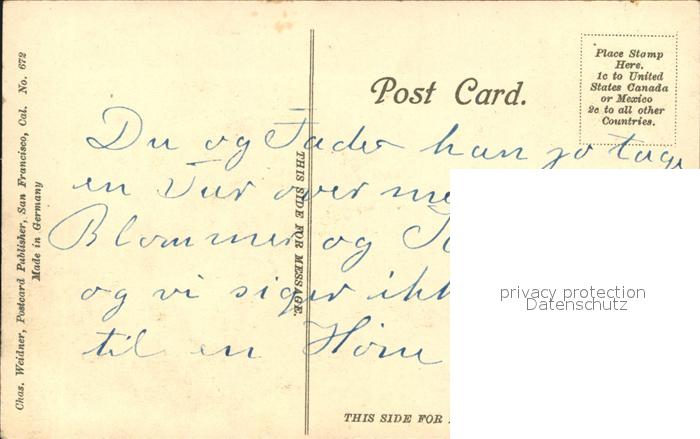 Chas. Weidner, Postcard Publisher, San Francisco, Cal. No. 672
Made in Germany
Post Card.
Place Stamp
Here.
1c to United
States Canada
or Mexico
2c to all other
Countries.
THIS SIDE FOR MESSAGE.
Du og Fader kan jo tage
en Tur over me
Blommer og
og vi siger ikk
til en
THIS SIDE FOR
privacy protection
Datenschutz